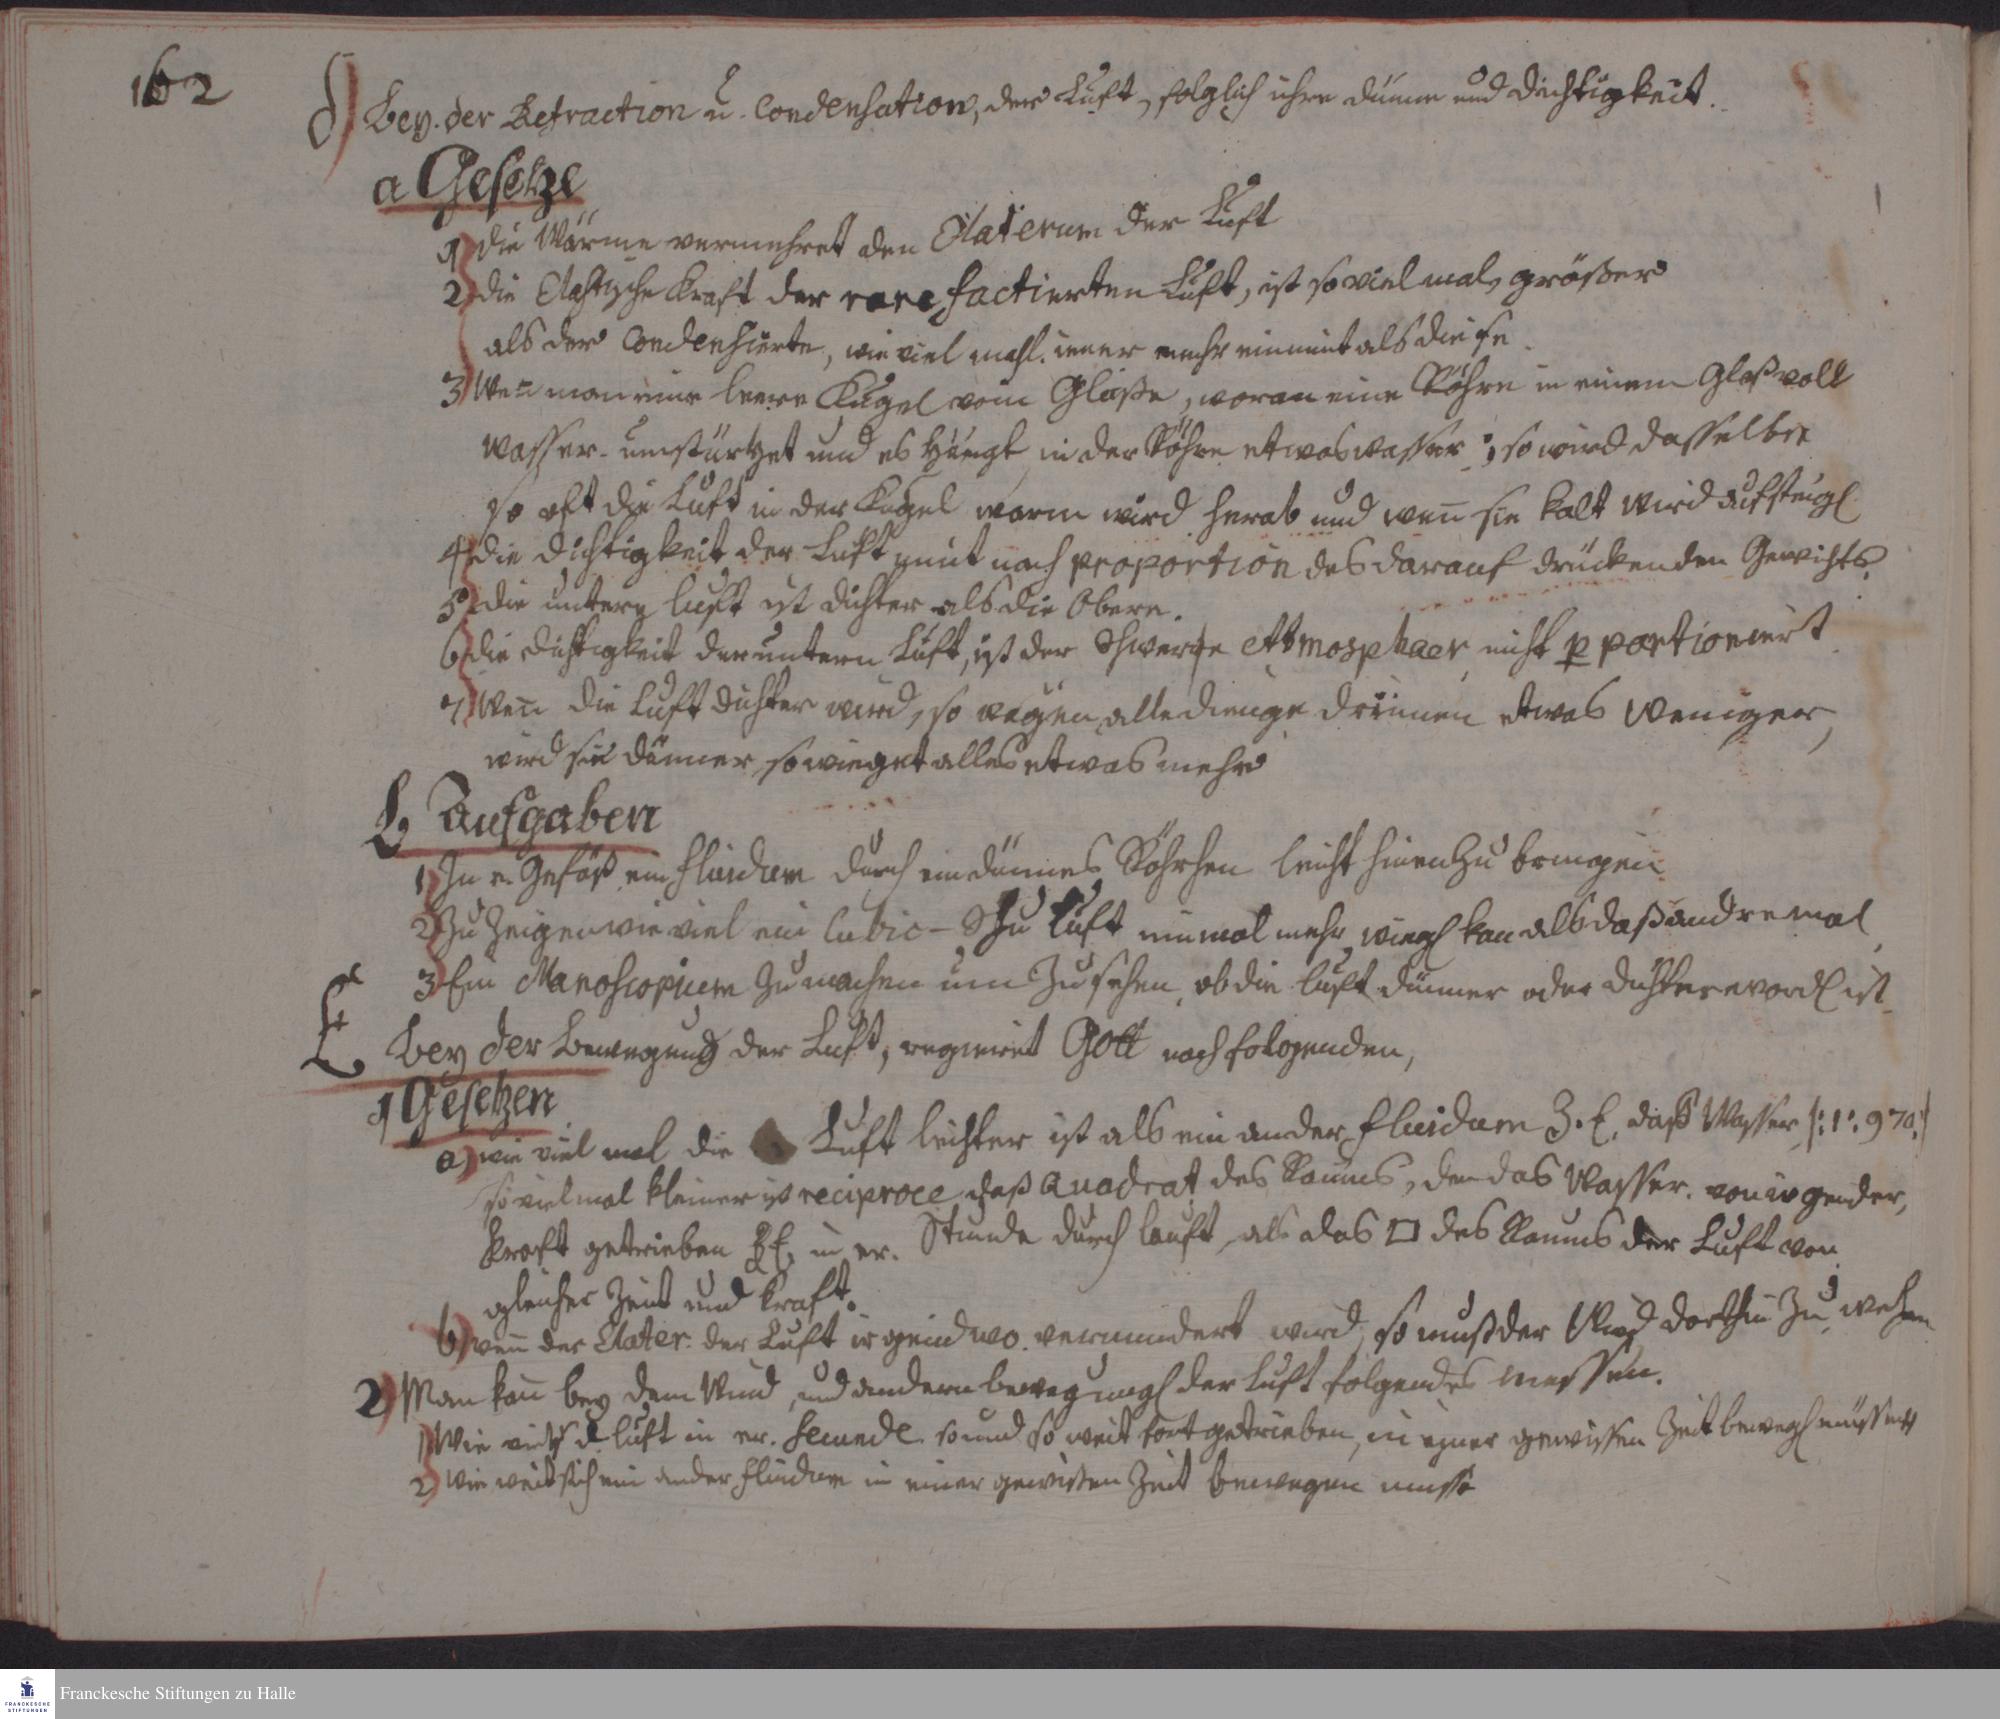 162
d) Bey der Refraction u. Condensation, der Luft, folglich ihre dünne und Dichtigkeit.
a Gesetze
1) die Wärme vermehret den Elaterum der Luft
2) die Elastische Kraft der rarefactierten Luft, ist so viel mal, größer
als der Condensierte, wie viel mahl. iener mehr einnimt als diese.
3) Wen̄ man eine leere Kugel vom Glase, woran eine Röhre in einem Glaß voll
Wasser umstürtzet und es hängt in der Röhre etwas wasser; so wird dasselbe
so oft die Luft in der Kugel warm wird herab und wen̄ sie kalt wird aufsteigen
4) die Dichtigkeit der Luft nimt nach proportion des darauf drückenden Gewichts,
5) die untere luft ist dichter als die Obere.
6) die Dichtigkeit der untern Luft, ist der Schwere Atmosphaer, nicht proportioniert
7) Wen̄ die Luft dichter wird, so wegen alle dinge drinnen etwas weniger,
wird sie dünner, so wieget alles etwas mehr
b Aufgaben
1) In e. Gefäß ein fluidum durch ein dünnes Röhrhen leicht hinen zu bringen
2) Zu Zeigen wie viel ein Cubic-Schu Luft einmal mehr wiegen kan als daß andre mal
3) Ein Manoscopium zu machen um Zu sehen, ob die luft dünner oder dichter worden ist.
E bey der Bewegung der Luft, regieret Gott nach folgenden,
1) Gesetzen
a) wie viel mal die Luft leichter ist als ein ander fluidum Z. E. daß Wasser /: 1: 970 :/
so viel mal kleiner ist reciproce daß Quadrat des Raums, den das Wasser. von irgender,
Kraft getrieben Z E. in er. Stunde durch lauft, als das □ des Raums der Luft von
gleicher Zeit und Kraft.
b) wen̄ der Elater. der Luft irgendwo. vermindert wird, so muß der Wind dorthin Zu wehen
2) Man kan̄ bey dem Wind, und andern bewegungen der luft folgendes messen.
1) Wie luft in er. so und so weit fort getrieben, in einer gewissen Zeit bewegen müsse
2) wie weit sich ein ander fluidum in einer gewissen Zeit bewegen müsse
Franckesche Stiftungen zu Halle
FRANCKESCHE
STIFTUNGEN